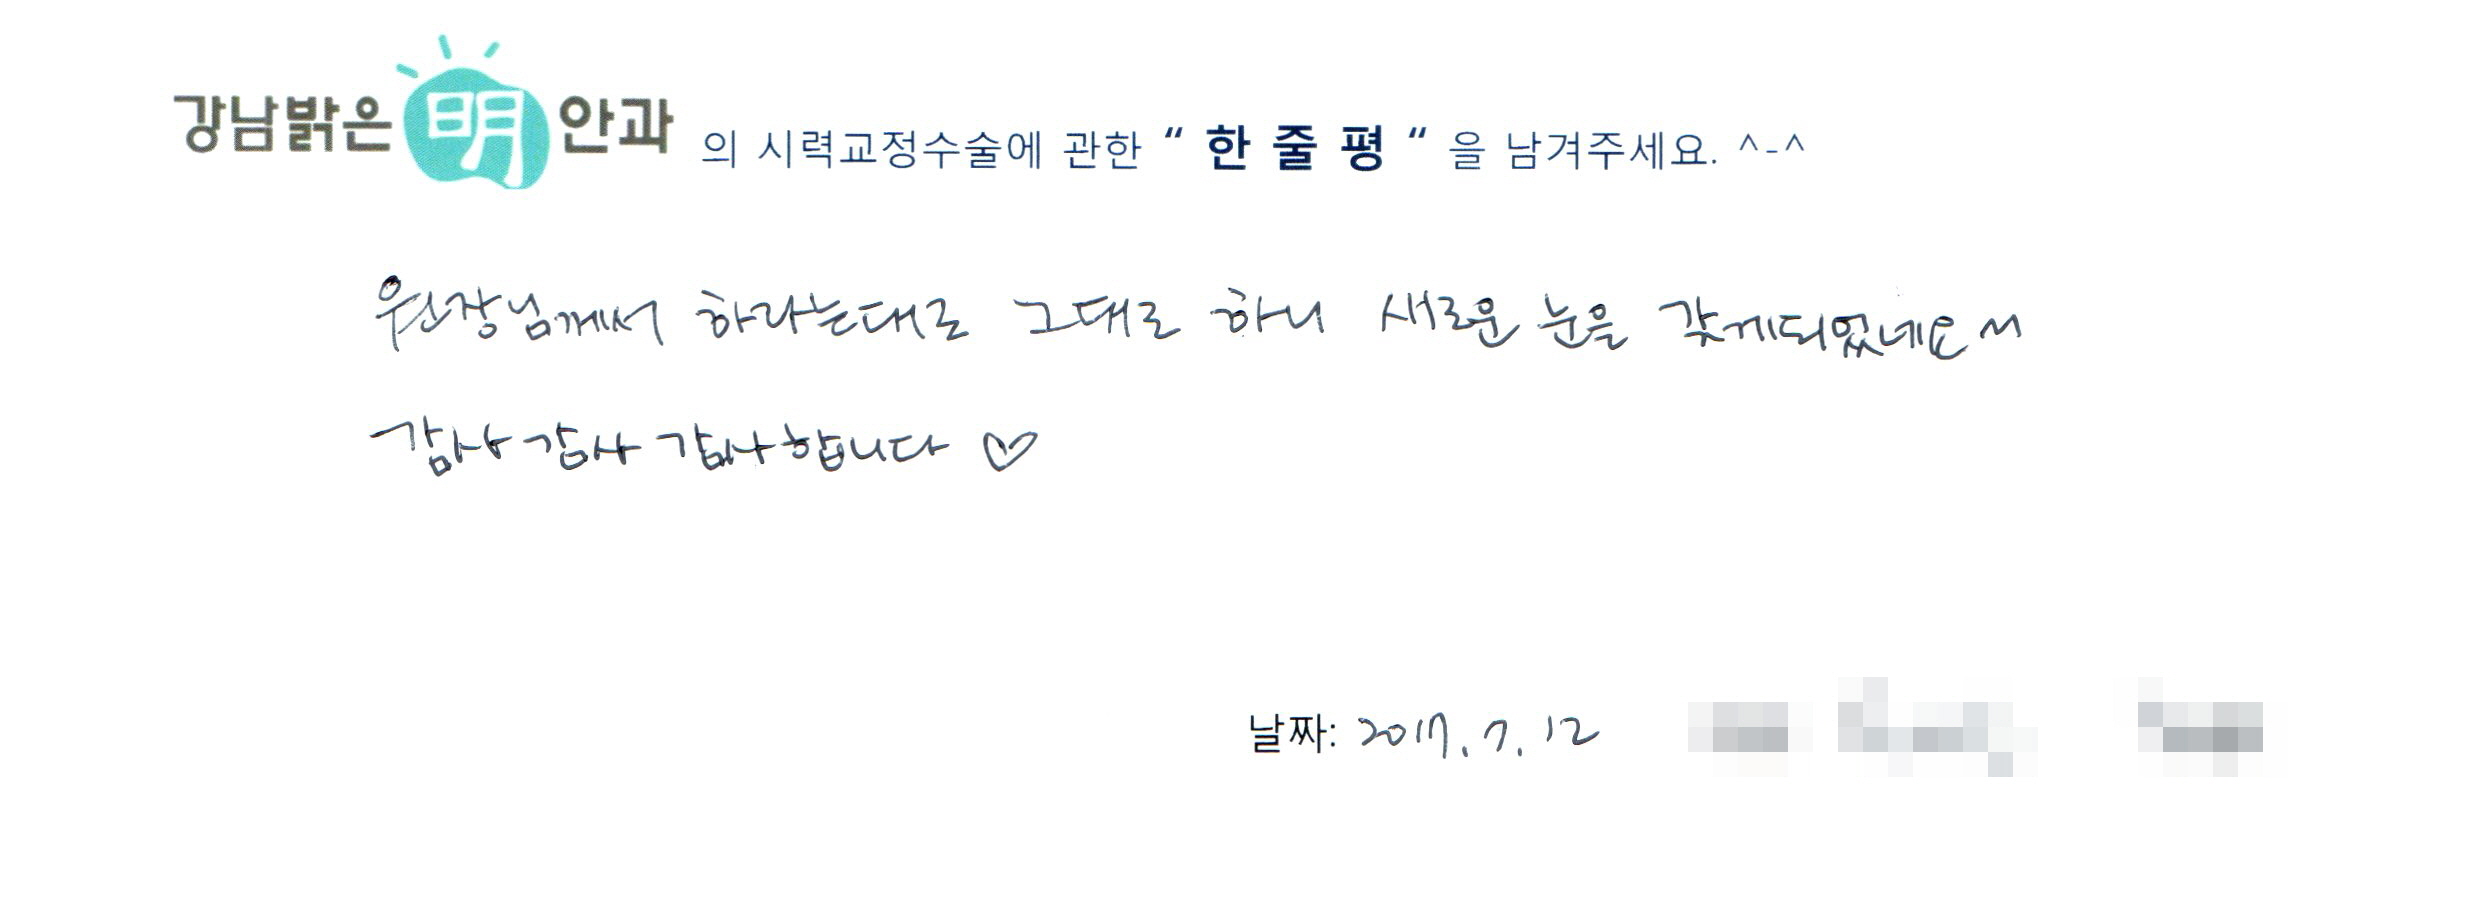 강남밝은 明 안과 의 시력교정수술에 관한 “ 한 줄 평 “ 을 남겨주세요. ^-^
원장님께서 하라는대로 그대로 하니 새로운 눈을 갖게되었네요~
감사 감사 감사합니다 ♡
날짜: 2017. 7. 12